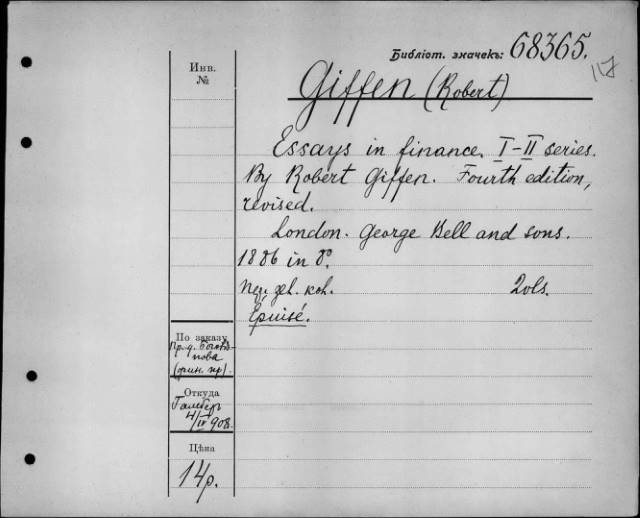 Библіот. значекъ: 68365.
117
Инв.
№
Giffen (Robert)
Essays in finance. I-II series.
By Robert Giffen. Fourth edition,
revised.
London. George Bell and sons.
1886 in 8°.
2 vols.
Épuisé.
По заказу
Пр. д.
(фин. пр).
Откуда
4/IV 908.
Цѣна
14р.